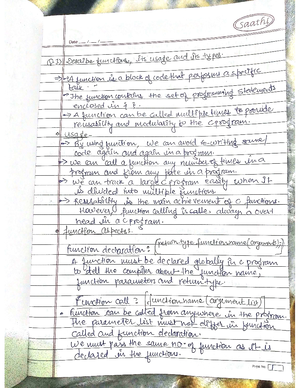 saathi
Date __/__/__
Q 1) Describe functions, its usage and its types.
→ A function is a block of code that performs a specific
task.
→ The function contains the set of programming statements
enclosed in { }.
→ A function can be called multiple times to provide
reusability and modularity to the C program.
• usage
→ By using function, we can avoid re-writing same/
code again and again in a program.
→ We can call a function any number of times in a
program and from any place in a program.
→ We can track a large C program easily when it
is divided into multiple functions.
→ Reusability is the main achievement of C functions.
However, function calling is always a over
head in a C program.
• function aspects
function declaration: return type function name (argument);
A function must be declared globally in a c program
to tell the compiler about the function name,
function parameters and return type.
Function call: function name (argument list)
• Function can be called from anywhere in the program
the parameter list must not differ in function
called and function declaration.
We must pass the same no. of function as it is
declared in the functions.